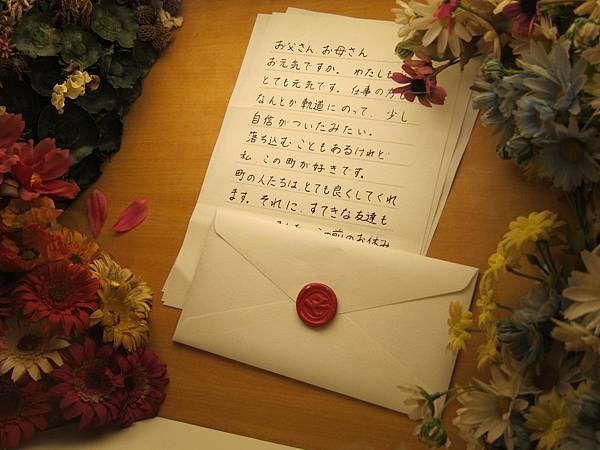 お父さん、お母さん
お元気ですか。わたしも
とても元気です。仕事の方も
なんとか軌道にのって、少し
自信がついたみたい。
落ち込むこともあるけれど
私、この町が好きです。
町の人たちはとても良くしてくれ
ます。それに、すてきな友達も
この前のお休み